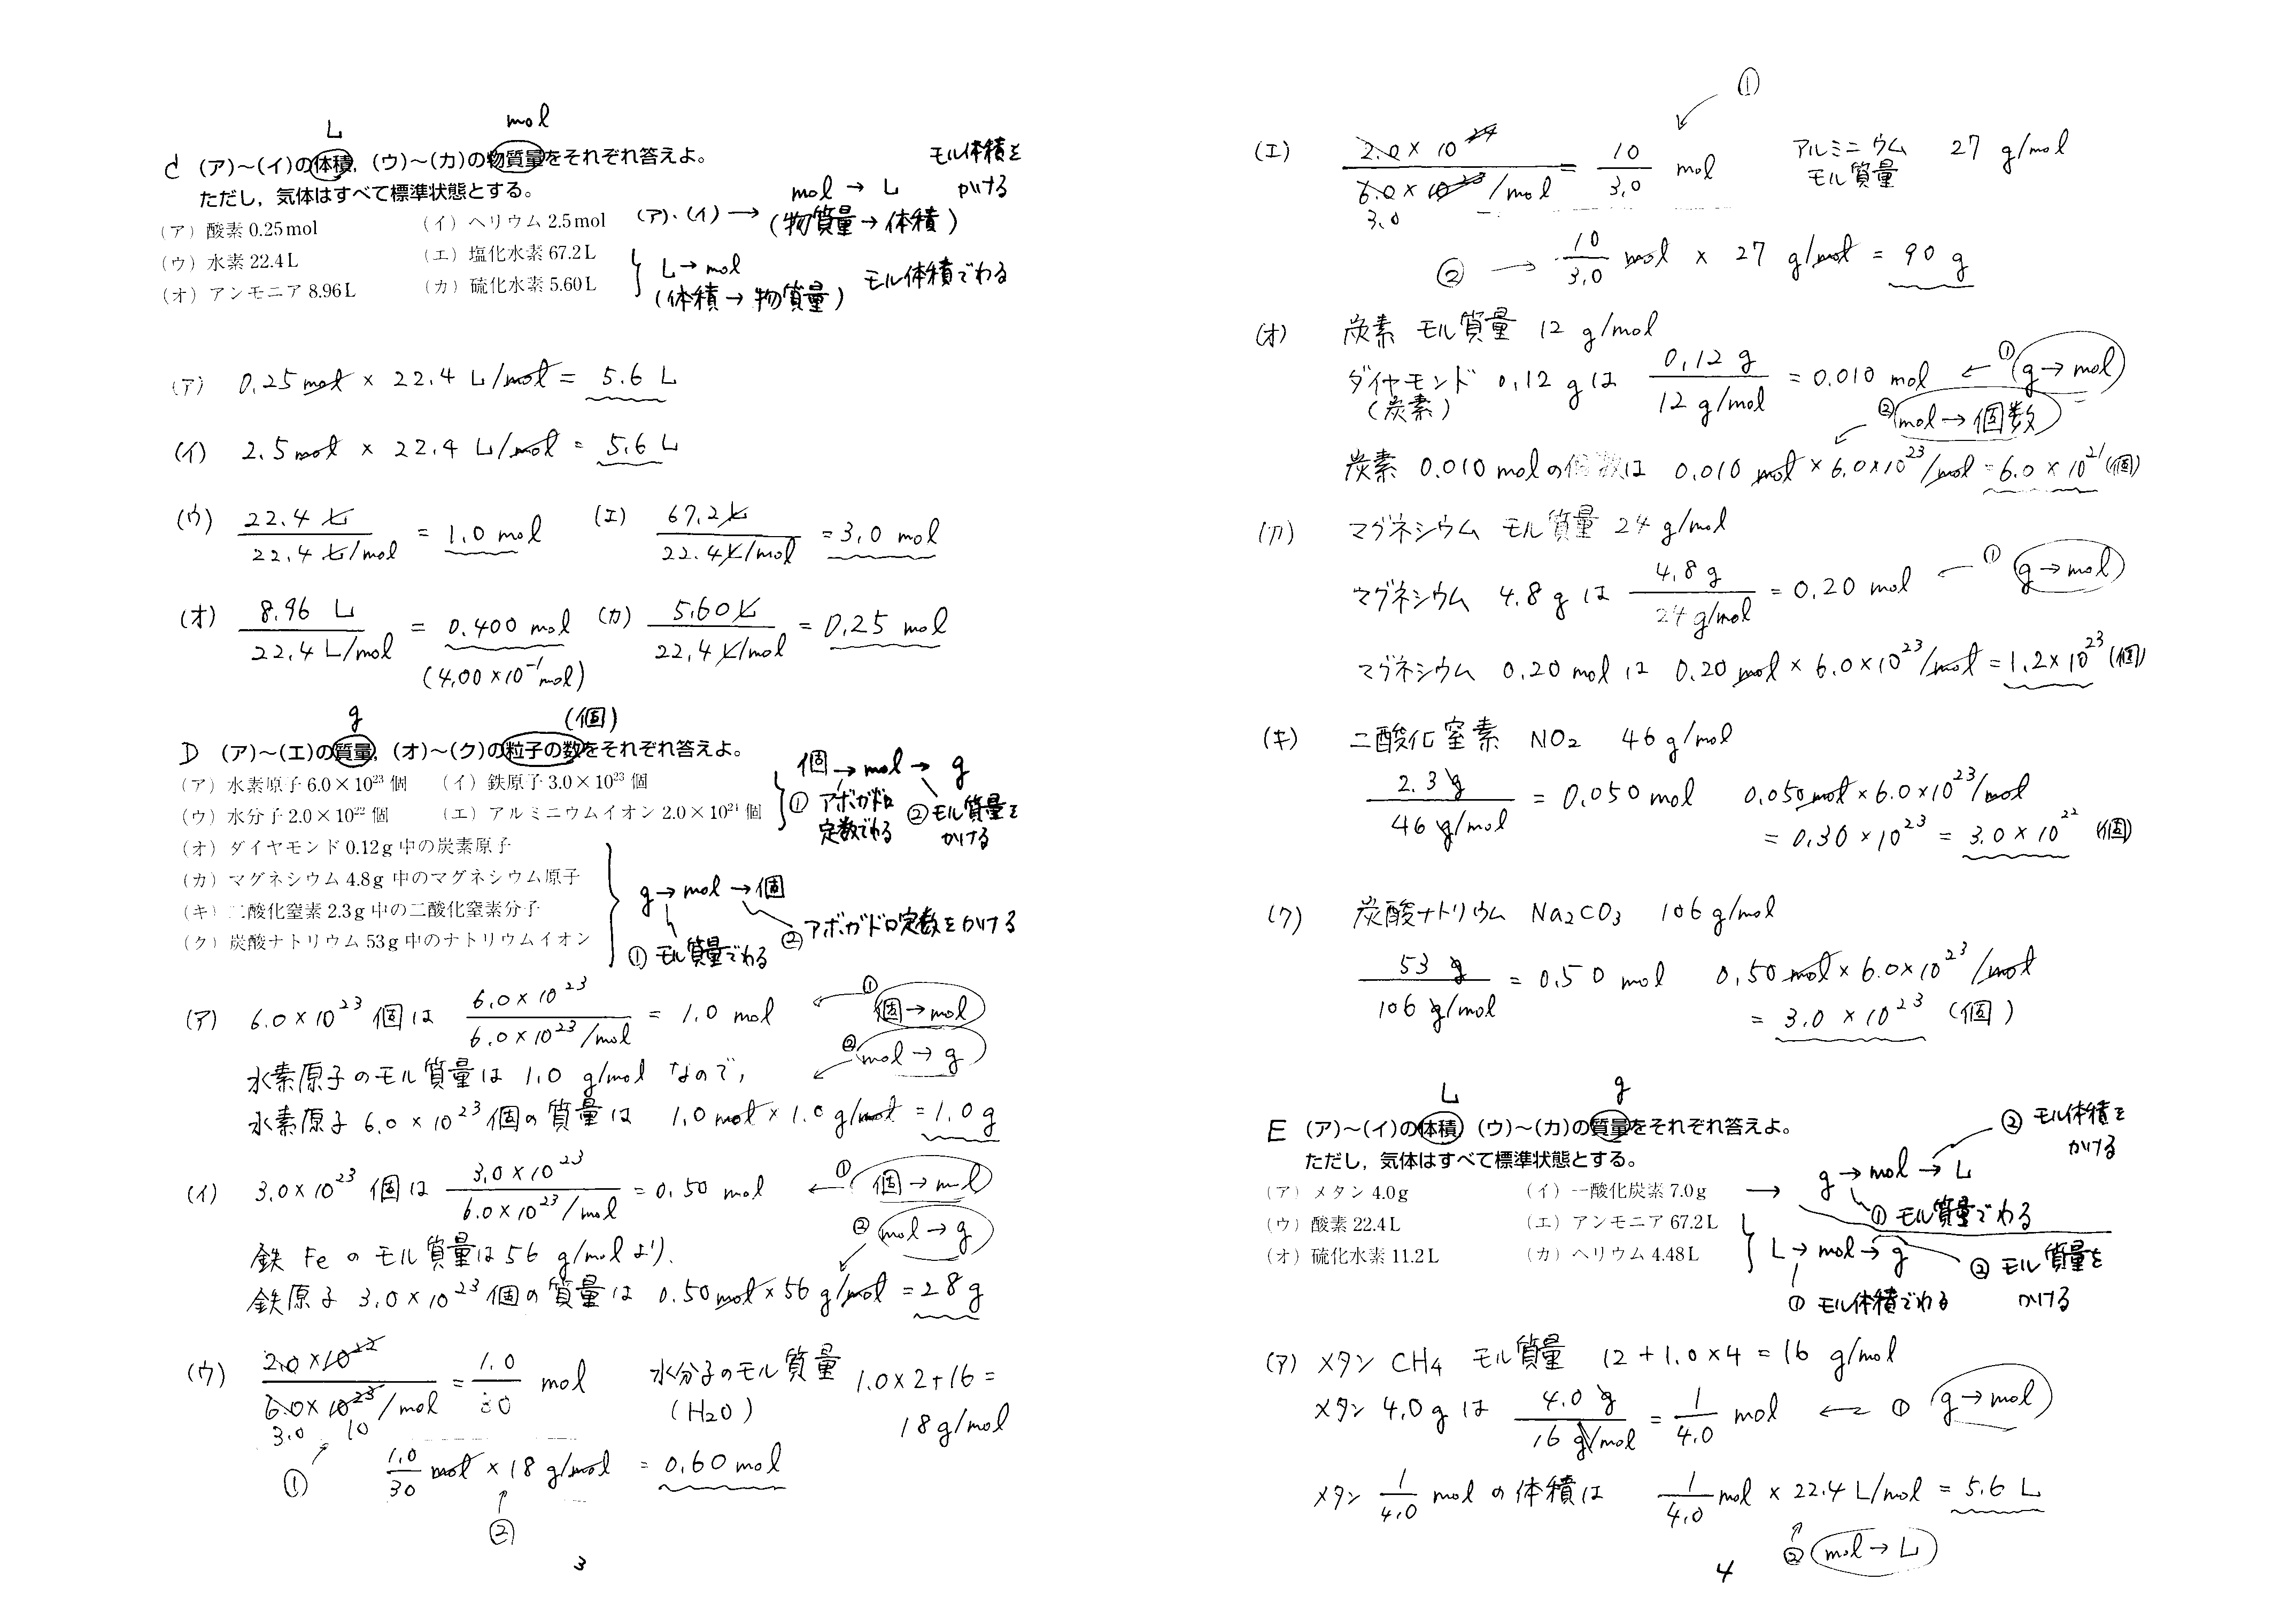 L mol
C (ア)～(イ)の体積, (ウ)～(カ)の物質量をそれぞれ答えよ。
ただし, 気体はすべて標準状態とする。
モル体積を
かける
(ア) 酸素 0.25mol (イ) ヘリウム 2.5mol (ア)・(イ) → mol → L
(物質量→体積)
(ウ) 水素 22.4L (エ) 塩化水素 67.2L
(オ) アンモニア 8.96L (カ) 硫化水素 5.60L
L→mol
(体積→物質量) モル体積でわる
(ア) 0.25 mol × 22.4 L/mol = 5.6 L
(イ) 2.5 mol × 22.4 L/mol = 5.6 L
(ウ) 22.4 L / 22.4 L/mol = 1.0 mol (エ) 67.2 L / 22.4 L/mol = 3.0 mol
(オ) 8.96 L / 22.4 L/mol = 0.400 mol (カ) 5.60 L / 22.4 L/mol = 0.25 mol
(4.00 × 10⁻¹ mol)
g (個)
D (ア)～(エ)の質量, (オ)～(ク)の粒子の数をそれぞれ答えよ。
(ア) 水素原子 6.0×10²³ 個 (イ) 鉄原子 3.0×10²³ 個
(ウ) 水分子 2.0×10²² 個 (エ) アルミニウムイオン 2.0×10²⁴ 個
個→mol→g
① アボガドロ
定数でわる
② モル質量を
かける
(オ) ダイヤモンド 0.12g 中の炭素原子
(カ) マグネシウム 4.8g 中のマグネシウム原子
(キ) 二酸化窒素 2.3g 中の二酸化窒素分子
(ク) 炭酸ナトリウム 53g 中のナトリウムイオン
g→mol→個
② アボガドロ定数をかける
① モル質量でわる
(ア) 6.0×10²³ 個は 6.0×10²³ / 6.0×10²³/mol = 1.0 mol ← ① 個→mol
② mol→g
水素原子のモル質量は 1.0 g/mol なので,
水素原子 6.0×10²³ 個の質量は 1.0 mol × 1.0 g/mol = 1.0 g
(イ) 3.0×10²³ 個は 3.0×10²³ / 6.0×10²³/mol = 0.50 mol ← ① 個→mol
② mol→g
鉄 Fe のモル質量は 56 g/mol より,
鉄原子 3.0×10²³ 個の質量は 0.50 mol × 56 g/mol = 28 g
(ウ) 2.0×10²² / 6.0×10²³/mol = 1.0/30 mol 水分子のモル質量 1.0×2+16=
3.0 10 (H₂O) 18 g/mol
① 1.0/30 mol × 18 g/mol = 0.60 mol
②
3
①
(エ) 2.0×10²⁴ / 6.0×10²³/mol = 10/3.0 mol アルミニウム 27 g/mol
3.0 モル質量
② → 10/3.0 mol × 27 g/mol = 90 g
(オ) 炭素 モル質量 12 g/mol
ダイヤモンド 0.12 g は 0.12 g / 12 g/mol = 0.010 mol ← ① g→mol
(炭素) ② mol→個数
炭素 0.010 mol の個数は 0.010 mol × 6.0×10²³/mol = 6.0×10²¹ (個)
(カ) マグネシウム モル質量 24 g/mol
マグネシウム 4.8 g は 4.8 g / 24 g/mol = 0.20 mol ← ① g→mol
マグネシウム 0.20 mol は 0.20 mol × 6.0×10²³/mol = 1.2×10²³ (個)
(キ) 二酸化窒素 NO₂ 46 g/mol
2.3 g / 46 g/mol = 0.050 mol 0.050 mol × 6.0×10²³/mol
= 0.30×10²³ = 3.0×10²² (個)
(ク) 炭酸ナトリウム Na₂CO₃ 106 g/mol
53 g / 106 g/mol = 0.50 mol 0.50 mol × 6.0×10²³/mol
= 3.0×10²³ (個)
L g
E (ア)～(イ)の体積 (ウ)～(カ)の質量をそれぞれ答えよ。
ただし, 気体はすべて標準状態とする。
② モル体積を
かける
(ア) メタン 4.0g (イ) 一酸化炭素 7.0g → g→mol→L
① モル質量でわる
(ウ) 酸素 22.4L (エ) アンモニア 67.2L
(オ) 硫化水素 11.2L (カ) ヘリウム 4.48L
L→mol→g
② モル質量を
かける
① モル体積でわる
(ア) メタン CH₄ モル質量 12+1.0×4=16 g/mol
メタン 4.0 g は 4.0 g / 16 g/mol = 1/4.0 mol ← ① g→mol
メタン 1/4.0 mol の体積は 1/4.0 mol × 22.4 L/mol = 5.6 L
② mol→L
4